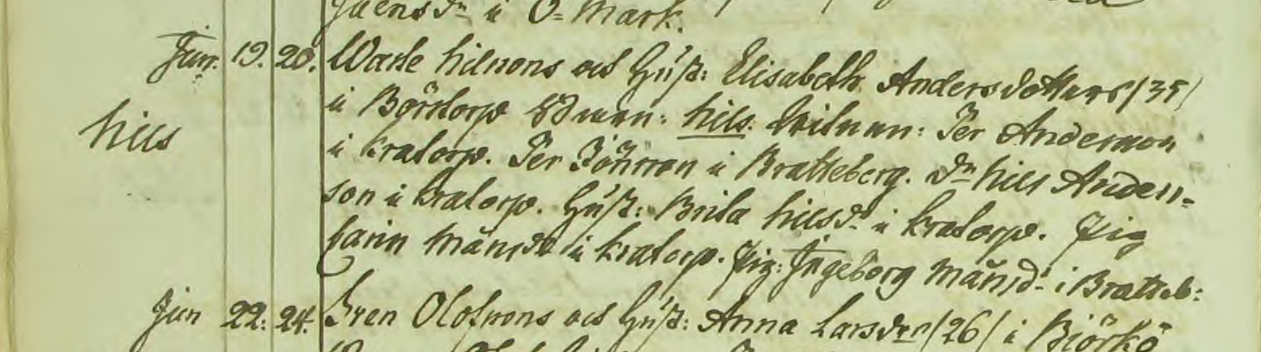 Svensd:r i O=Mark.
Jun. 19. 20. Warle Nilsons och Hust: Elisabeth Andersdotters /35/
Nils i Börstorp Son: Nils. Vittnen: Per Anderson
i Kratorp. Per Jönsson i Bratteberg. Dr: Nils Ander=
son i Kratorp. Hust: Brita Nilsd:r i Kratorp. Pig
Carin Månsd:r i Kratorp. Pig: Ingeborg Månsd: i Bratteb:
Jun 22. 24. Sven Olofsons och Hust: Anna Larsd:r /26/ i Björkö